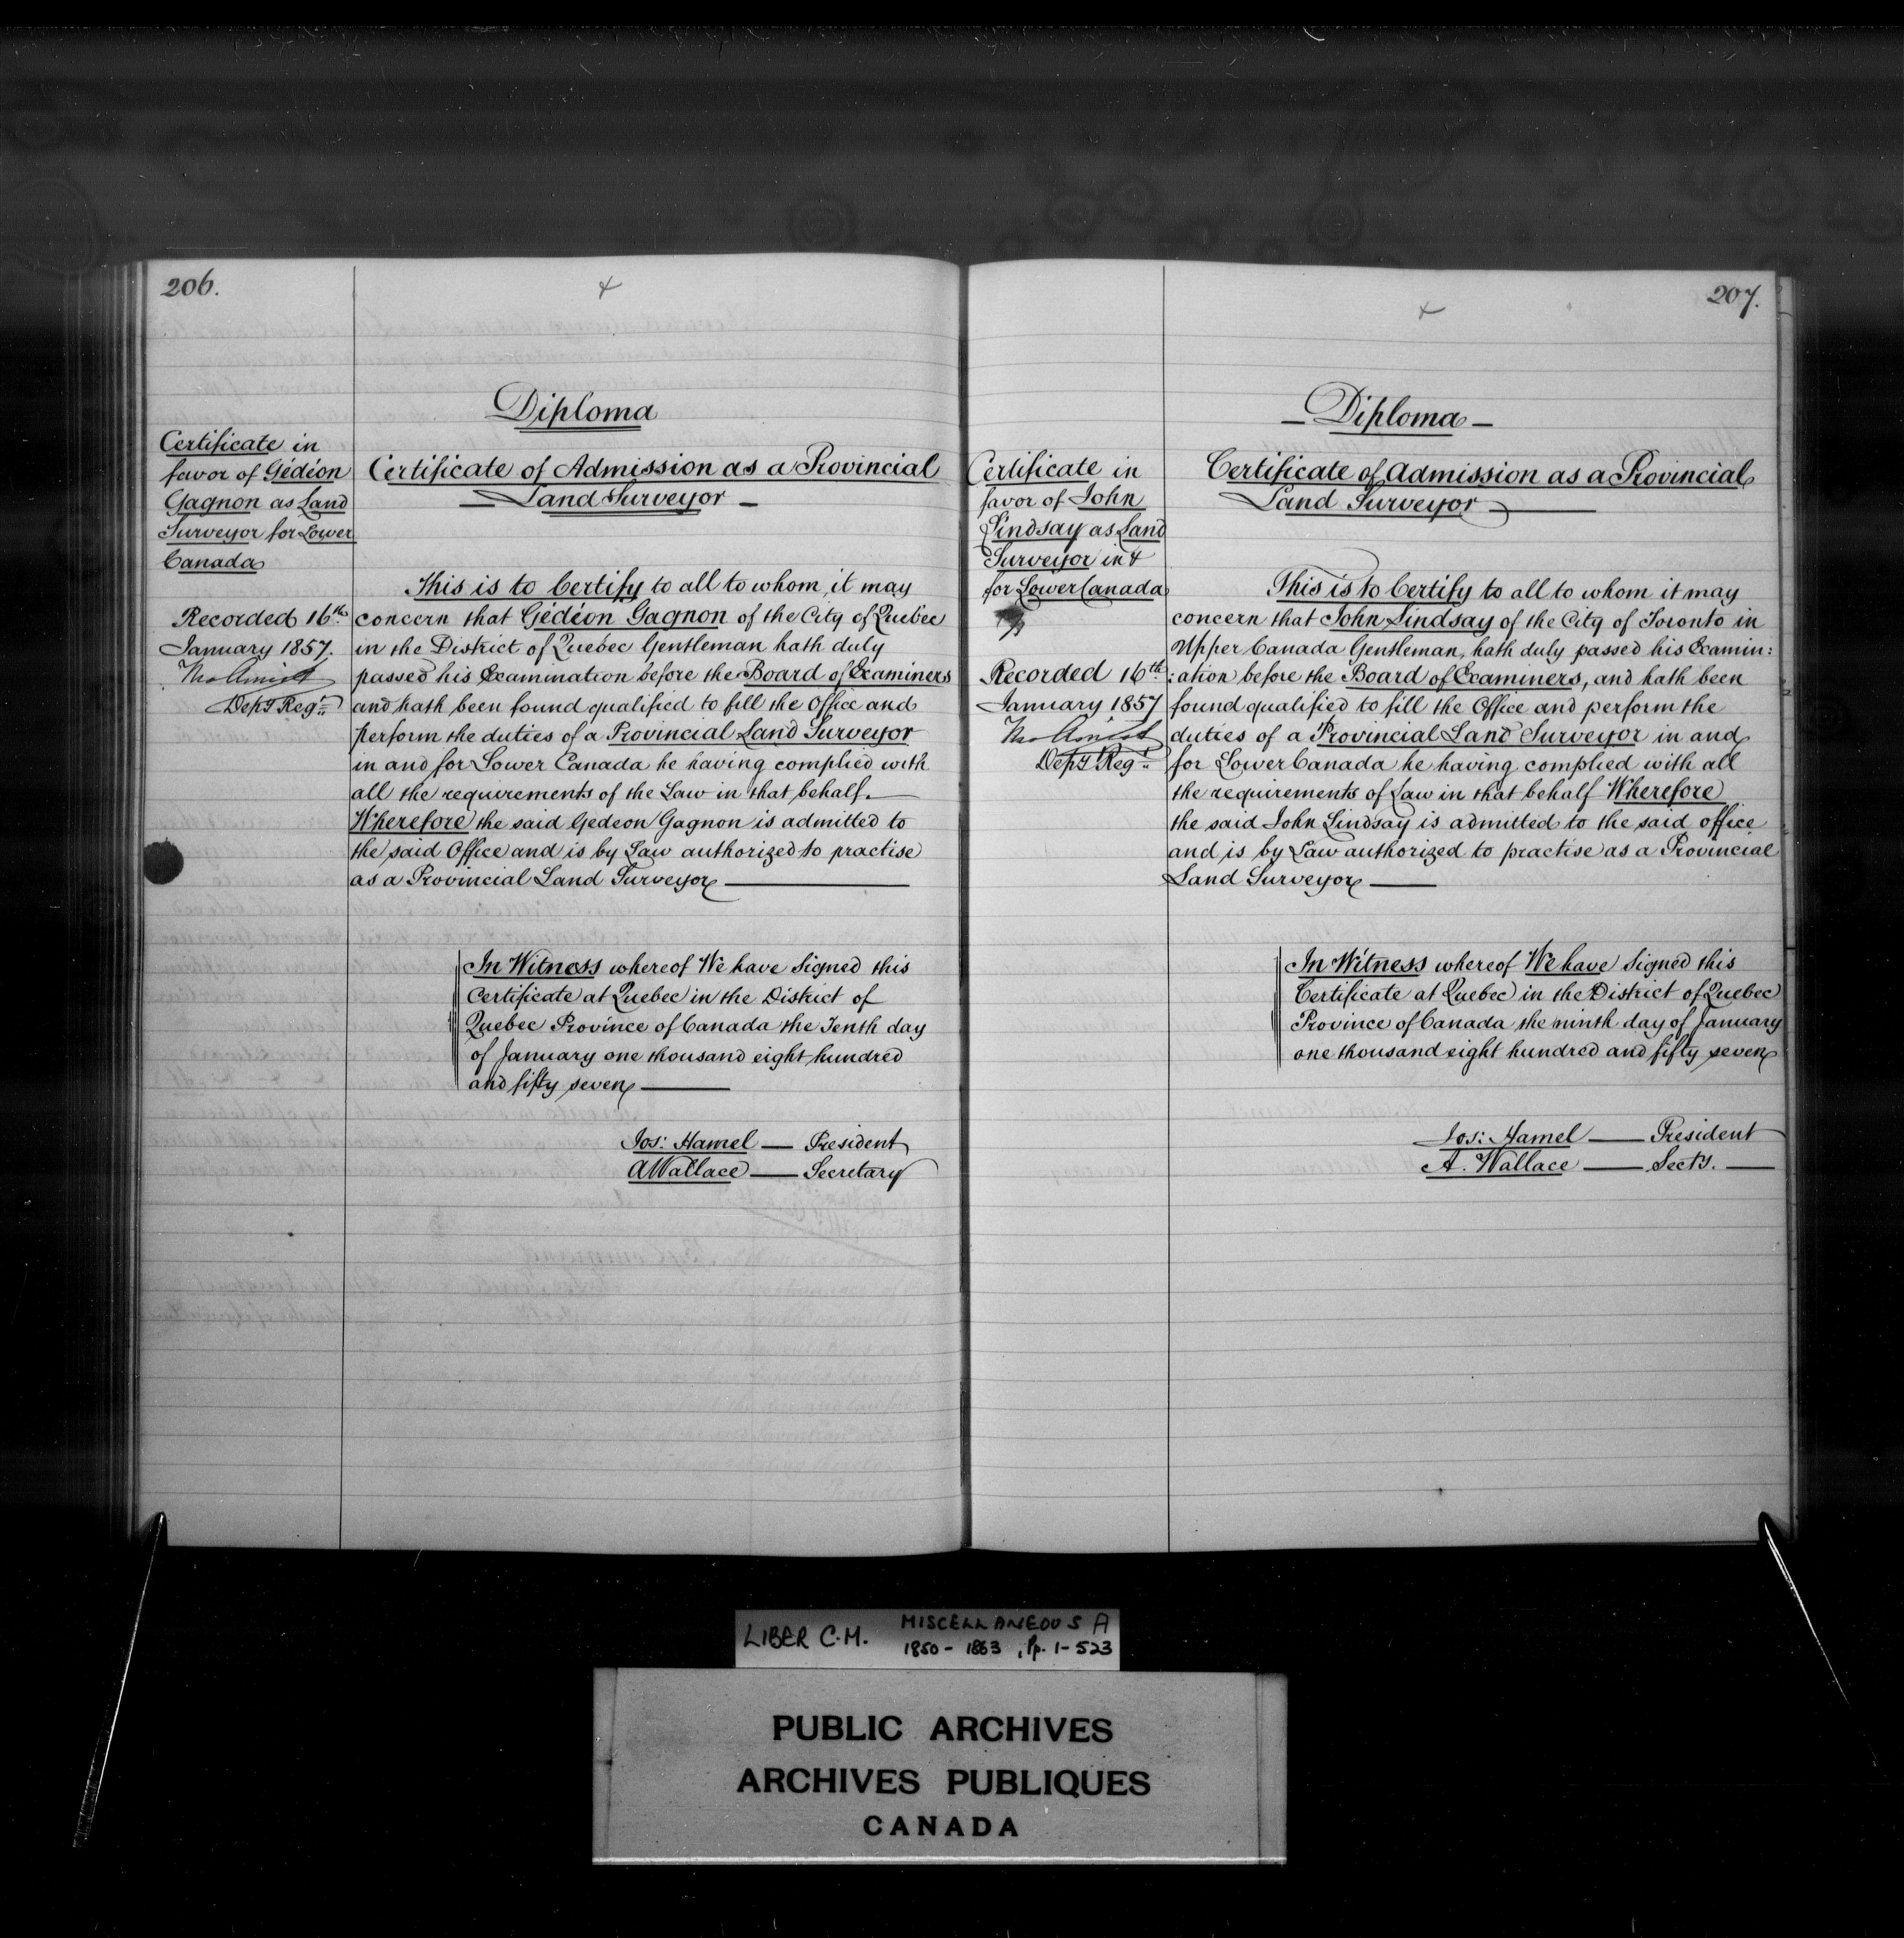 206.
Diploma
Certificate in
favor of Gédéon
Gagnon as Land
Surveyor for Lower
Canada
Recorded 16th
January 1857.
Thos Amiot
Depy Regr
Certificate of Admission as a Provincial
Land Surveyor
This is to Certify to all to whom it may
concern that Gédéon Gagnon of the City of Quebec
in the District of Quebec Gentleman hath duly
passed his Examination before the Board of Examiners
and hath been found qualified to fill the Office and
perform the duties of a Provincial Land Surveyor
in and for Lower Canada he having complied with
all the requirements of the Law in that behalf.
Wherefore the said Gedeon Gagnon is admitted to
the said Office and is by Law authorized to practise
as a Provincial Land Surveyor
In Witness whereof We have Signed this
Certificate at Quebec in the District of
Quebec Province of Canada the Tenth day
of January one thousand eight hundred
and fifty seven
Jos: Hamel — President
A Wallace — Secretary
207.
— Diploma —
Certificate in
favor of John
Lindsay as Land
Surveyor in &
for Lower Canada
Recorded 16th
January 1857
Thos Amiot
Depy Regr
Certificate of Admission as a Provincial
Land Surveyor
This is to Certify to all to whom it may
concern that John Lindsay of the City of Toronto in
Upper Canada Gentleman, hath duly passed his Examin:
:ation before the Board of Examiners, and hath been
found qualified to fill the Office and perform the
duties of a Provincial Land Surveyor in and
for Lower Canada he having complied with all
the requirements of Law in that behalf Wherefore
the said John Lindsay is admitted to the said office
and is by Law authorized to practise as a Provincial
Land Surveyor
In Witness whereof We have Signed this
Certificate at Quebec in the District of Quebec
Province of Canada the ninth day of January
one thousand eight hundred and fifty seven
Jos: Hamel — President
A. Wallace — Secty.
LIBER C.M. MISCELLANEOUS A
1850 - 1863, Pp. 1-523
PUBLIC ARCHIVES
ARCHIVES PUBLIQUES
CANADA